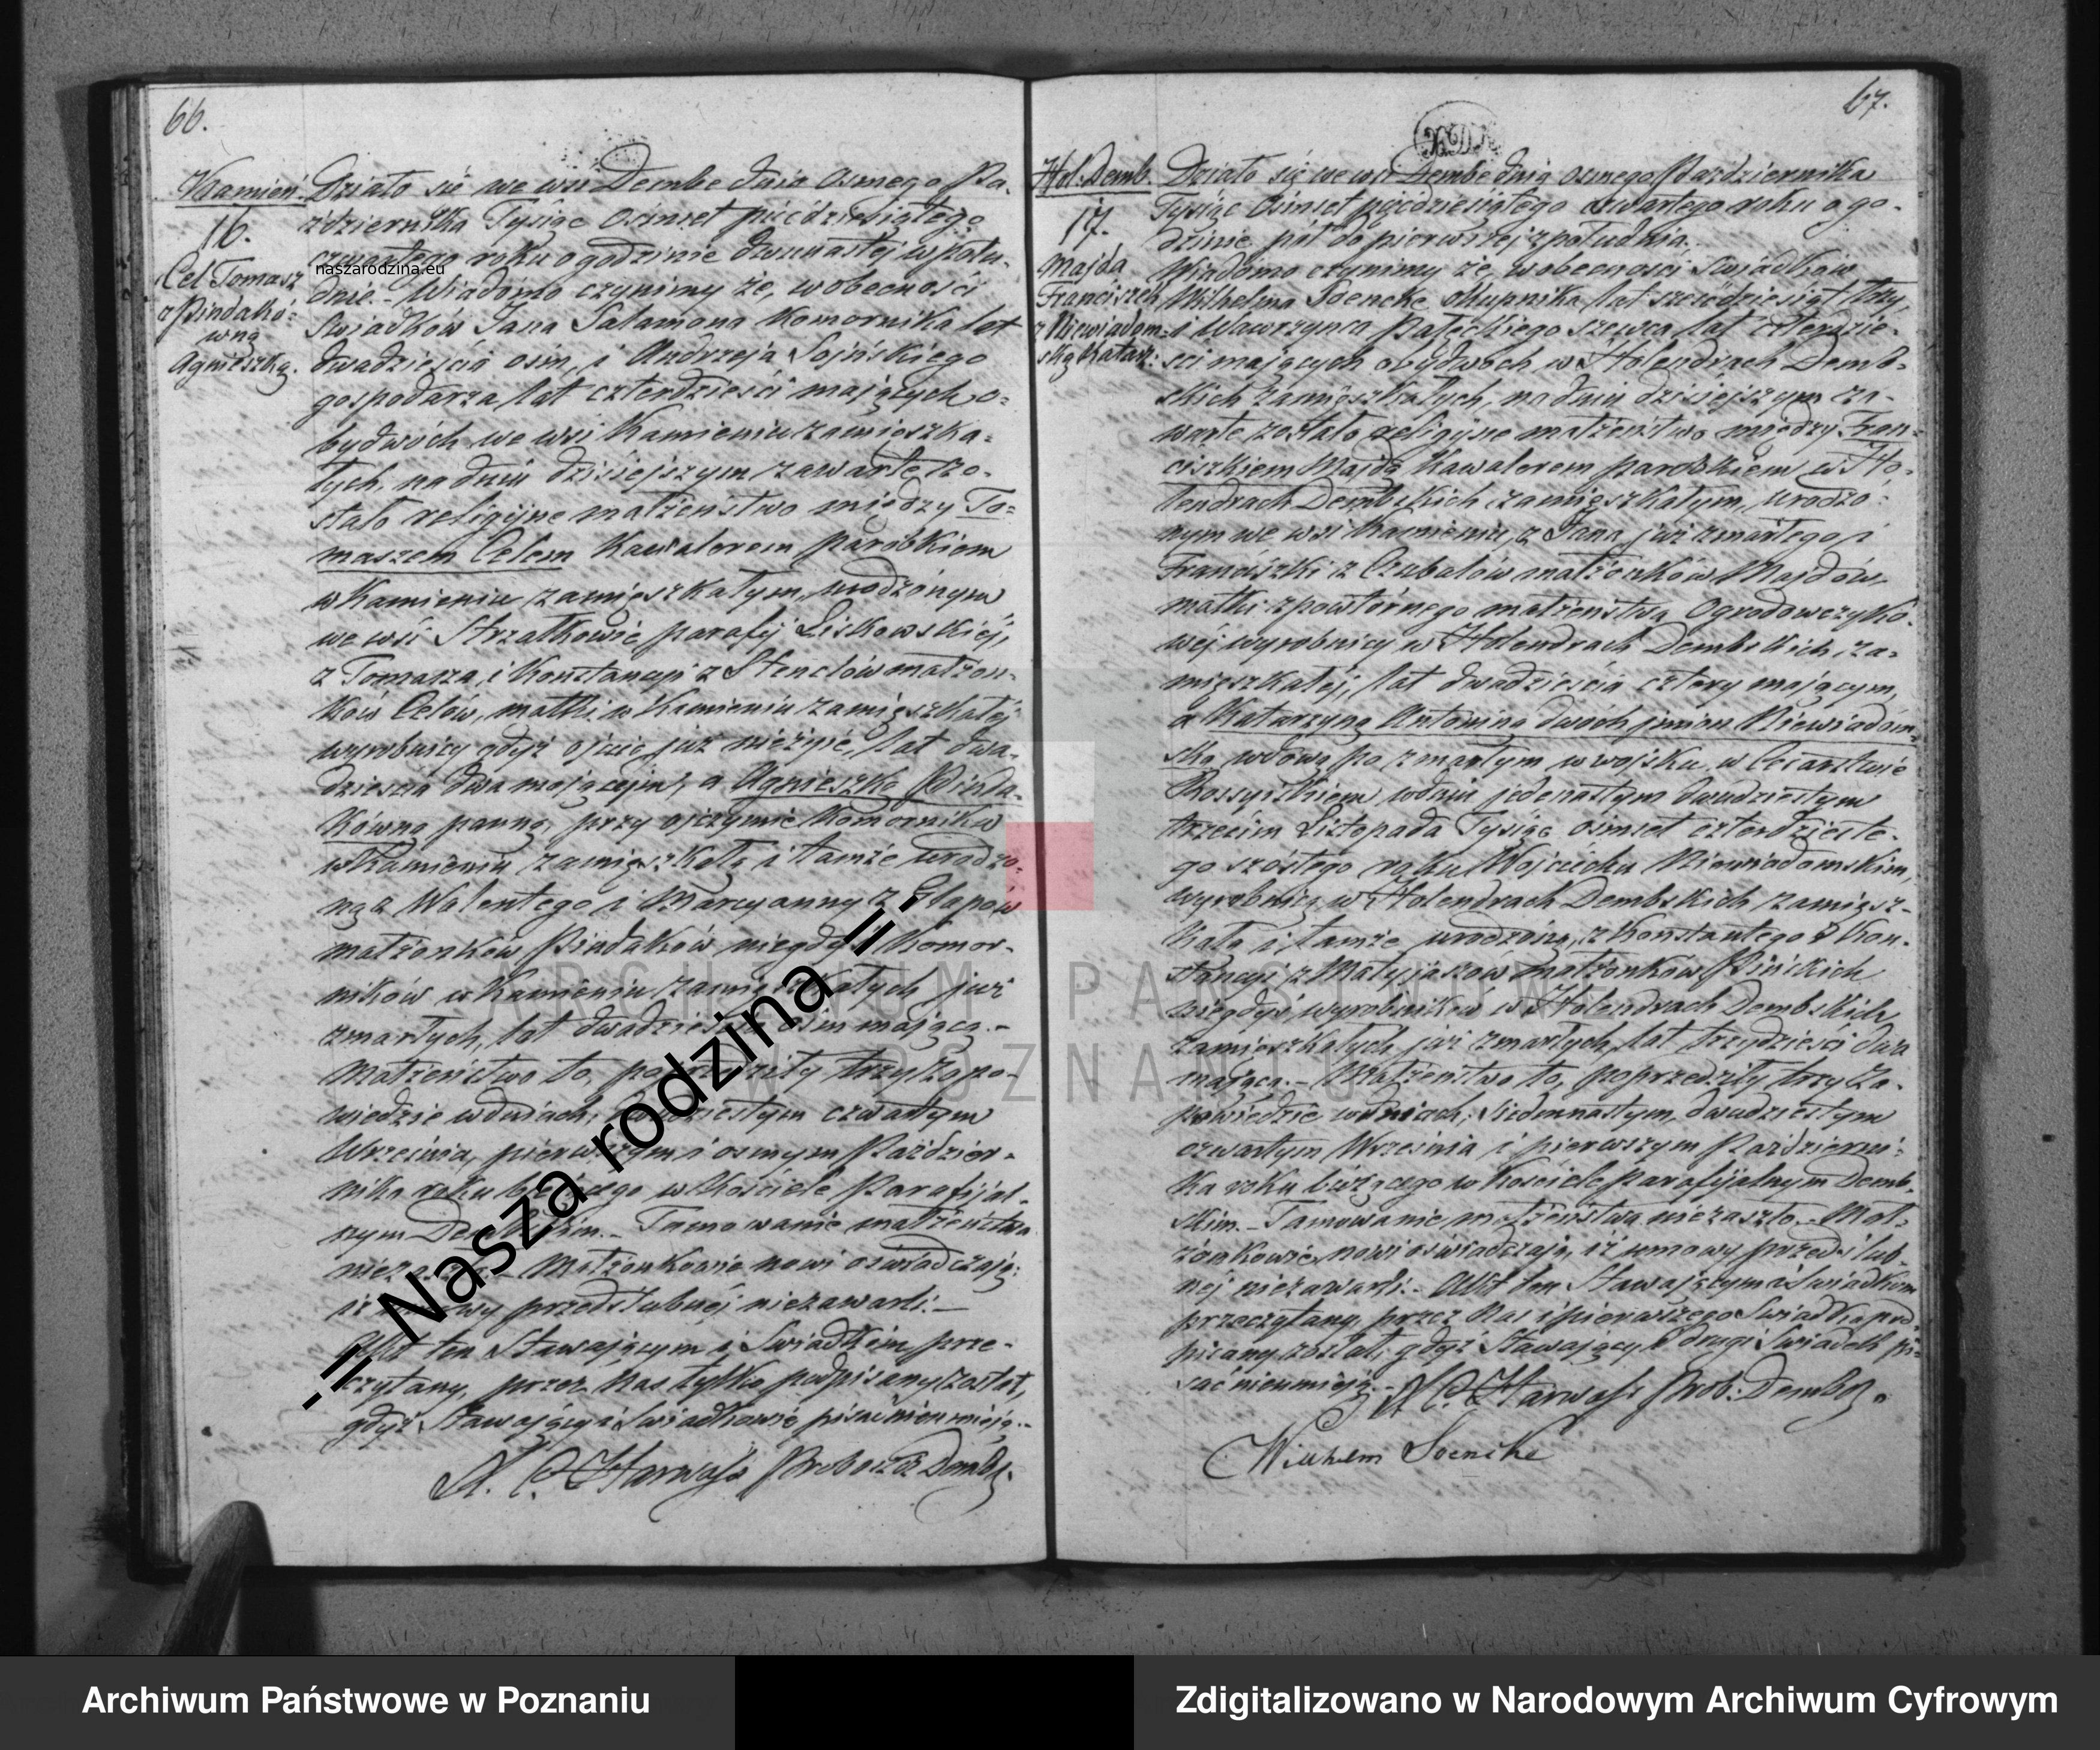 66.
Kamień.
16.
Cel Tomasz
z Pindakó-
wną
Agnieszką.
Działo się we wsi Dembe dnia osmego Pa-
zdziernika Tysiąc osimset pięćdziesiątego
czwartego roku o godzinie dwunastej w połu-
dnie.- Wiadomo czynimy że, w obecności
Swiadków Jana Salamona Komornika lat
dwadzieścia osim, i Andrzeja Sojńskiego
gospodarza lat czterdzieści mających o-
bydwóch we wsi Kamieniu zamieszka-
łych, na dniu dzisiejszym zawarte zo-
stało religijne małżeństwo między To-
maszem Celem Kawalerem parobkiem
w Kamieniu zamięszkałym, urodzonym
we wsi Strzałkowie parafij Liskowskiéj,
z Tomasza i Konstancyi z Stenclów małżon-
ków Celów, matki w Kamieniu zamięszkałéj
wyrobnicy gdyż ojciec już nieżyie, lat dwa-
dzieścia dwa mającym, a Agnieszką Pinda-
kówną panną, przy ojczymie Komorniku
w Kamieniu zamięszkałą i tamże urodzo-
ną z Walentego i Marcyanny z Głapów
małżonków Pindaków niegdyś Komor-
ników w Kamieniu zamięszkałych już
zmarłych, lat dwadzieścia osim mającą.-
Małżeństwo to, poprzedziły trzy zapo-
wiedzie w dniach, dwudziestym czwartym
Września, pierwszym i osmym Paździer-
nika roku bieżącego w Kościele Parafijal-
nym Dembskim.- Tamowanie małżeństwa
niezaszło.- Małżonkowie nowi oświadczają:
iż umowy przedślubnéj niezawarli.-
Akt ten Stawającym i Swiadkom prze-
czytany, przez Nas tylko podpisany został,
gdyż Stawający i Swiadkowie pisać nieumieją.-
Proboszcz Dembs.
67.
Hol: Demb.
17.
Majda
Franciszek
z Niewiadom-
ską Katarz:
Działo się we wsi Dembe dnia osmego Pazdziernika
Tysiąc Osimset pięćdziesiątego czwartego roku o go-
dzinie pół do pierwszej z południa.
Wiadomo czynimy że, w obecności Swiadków
Wilhelma Soencke okupnika lat sześćdziesiąt trzy,
i Wawrzynca Pałeckiego szewca lat czterdzie-
ści mających obydwóch w Holendrach Demb-
skich zamięszkałych, na dniu dzisiejszym za-
warte zostało religijne małżeństwo między Fran-
ciszkiem Majdą Kawalerem parobkiem w Ho-
lendrach Dembskich zamięszkałym, urodzo-
nym we wsi Kamieniu, z Jana już zmarłego i
Franciszki z Czubałów małżonków Majdów,
matki z powtórnego małżeństwa Ogrodowczyko-
wéj wyrobnicy w Holendrach Dembskich za-
mięszkałéj, lat dwadzieścia cztery mającym,
a Katarzyną Antoniną dwóch imion Niewiadom-
ską wdową po zmarłym w wojsku w Cesarstwie
Rossyiskiem w dniu jedenastym dwudziestym
trzecim Listopada Tysiąc osimset czterdzieste-
go szóstego roku Wojciechu Niewiadomskim,
wyrobnicą w Holendrach Dembskich zamięsz-
kałą i tamże urodzoną, z Konstantego i Kon-
stancyi z Matyjasów małżonków Pińskich
niegdyś wyrobników w Holendrach Dembskich
zamieszkałych już zmarłych, lat trzydzieści dwa
mającą.- Małżeństwo to, poprzedziły trzy Za-
powiedzie w dniach, siedmnastym, dwudziestym
czwartym Września i pierwszym Październi-
ka roku bieżącego w Kościele Parafijalnym Demb-
skim.- Tamowanie małżeństwa niezaszło.- Mał-
żonkowie nowi oświadczają, iż umowy przedślub-
nej niezawarli.- Akt ten Stawającym i Swiadkom
przeczytany, przez Nas i pierwszego Swiadka pod-
pisany został, gdyż Stawający i drugi Swiadek pi-
sać nieumieją.-
Prob: Dembs.
Wilhelm Soencke
naszarodzina.eu
-= Nasza rodzina =-
ARCHIWUM PAŃSTWOWE
W POZNANIU
Archiwum Państwowe w Poznaniu
Zdigitalizowano w Narodowym Archiwum Cyfrowym